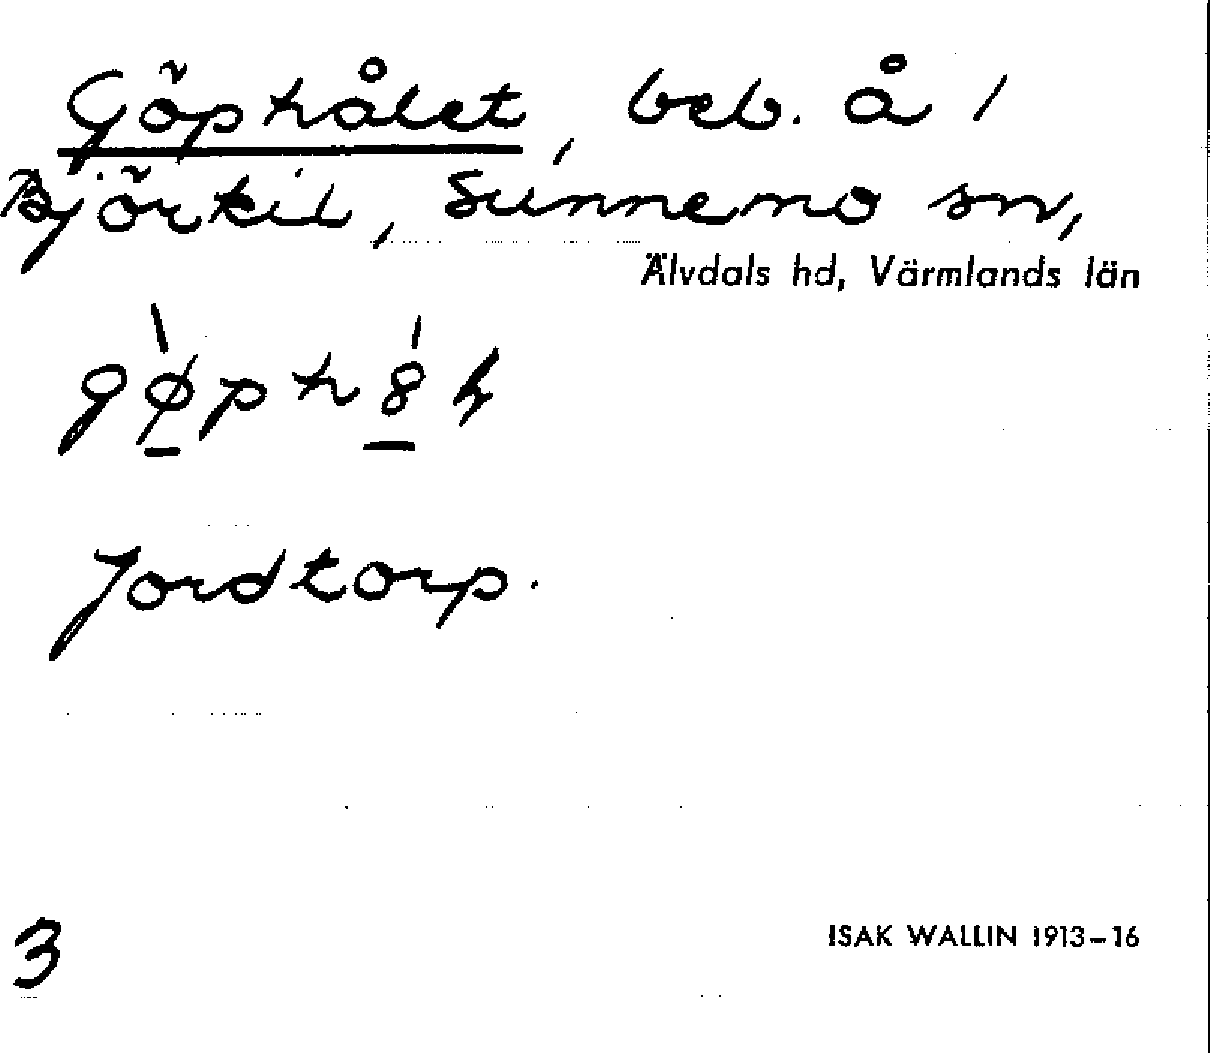 Göphålet, beb. å 1
Björkil, Sunnemo sn,
Älvdals hd, Värmlands län
Jordtorp.
3
ISAK WALLIN 1913–16